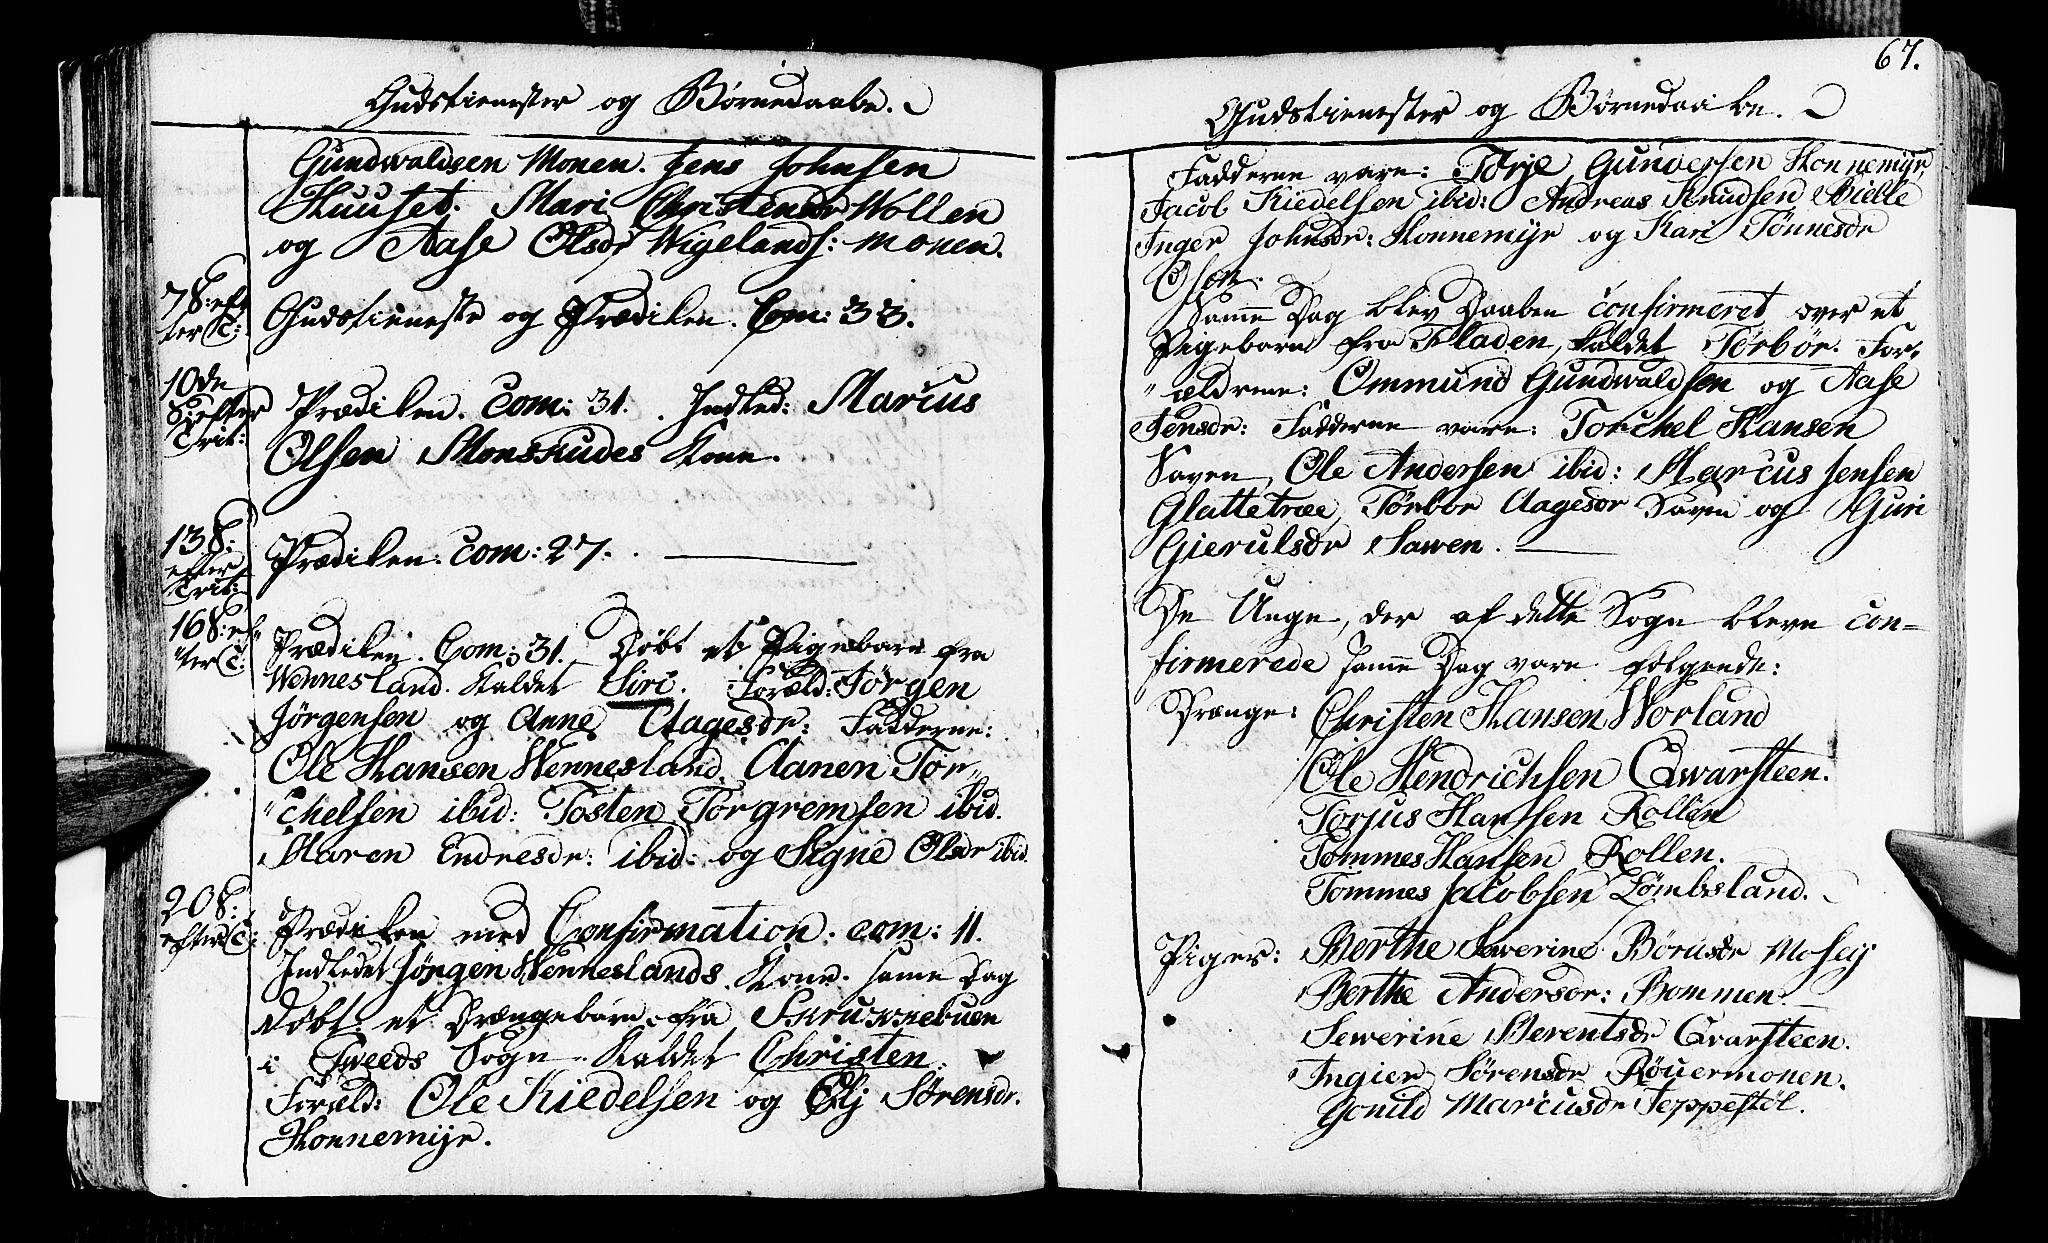 Gudstienester og Børnedaabe.
Gundwaldsen Monen. Jens Johnsen
Huuset. Mari Christensdr Wollen
og Aase Olsdr Wigelands: monen.
7 S: ef-
ter T:
Gudstieneste og Prædiken. Com: 33.
10de
S: efter
Trit:
Prædiken. Com: 31. Indled: Marcus
Olsen Monskudes Kone.
13 S:
efter
Trit:
Prædiken. Com: 27.
16 S: ef-
ter T:
Prædiken. Com: 31. Døbt et Pigebarn fra
Wennesland. Kaldet Siri. Foræld: Jørgen
Jørgensen og Anne Aagesdr: Fadderne:
Ole Hansen Wennesland, Aanen Tor-
chelsen ibid: Tosten Torgremsen ibid.
Maren Endresdr: ibid: og Signe Olsdr ibid.
20 S:
efter T:
Prædiken med Confirmation. com: 11.
Indledet Jørgen Wenneslands Kone. samme Dag
døbt et Drængebarn fra Skrukkebuen
i Tveeds Sogn. Kaldet Christen.
Foræld: Ole Kiedelsen og Elj Sørensdr.
Honnemyr.
67.
Gudstienester og Børnedaabe.
Fadderne vare: Torje Gundersen Honnemyr,
Jacob Kiedelsen ibid: Andreas Knudsen Bielle
Inger Johnsdr: Honnemyr og Kari Tönnesdr
Osen.
Samme Dag blev Daaben confirmeret over et
Pigebarn fra Fladen, kaldet Törbör. For-
ældrene: Ommund Gundwaldsen og Aase
Jensdr: Fadderne vare: Torchel Hansen
Saven, Ole Andersen ibid: Marcus Jensen
Glattetræe, Törbor Aagesdr Saven og Guri
Gierulsdr Sawen.
De Unge, der af dette Sogn bleve con-
firmerede samme Dag vare følgende:
Drænge: Christen Hansen Worland
Ole Hendrichsen Qwarsteen.
Torjus Hansen Rollen
Tommes Hansen Rollen.
Tommes Jacobsen Lömbsland.
Piger: Berthe Sewerine Börusdr Mosey
Berthe Andersdr: Bommen.
Sewerine Berentsdr Qvarsteen.
Ingier Sörensdr Röuermonen.
Gonild Marcusdr Jeppestöl.